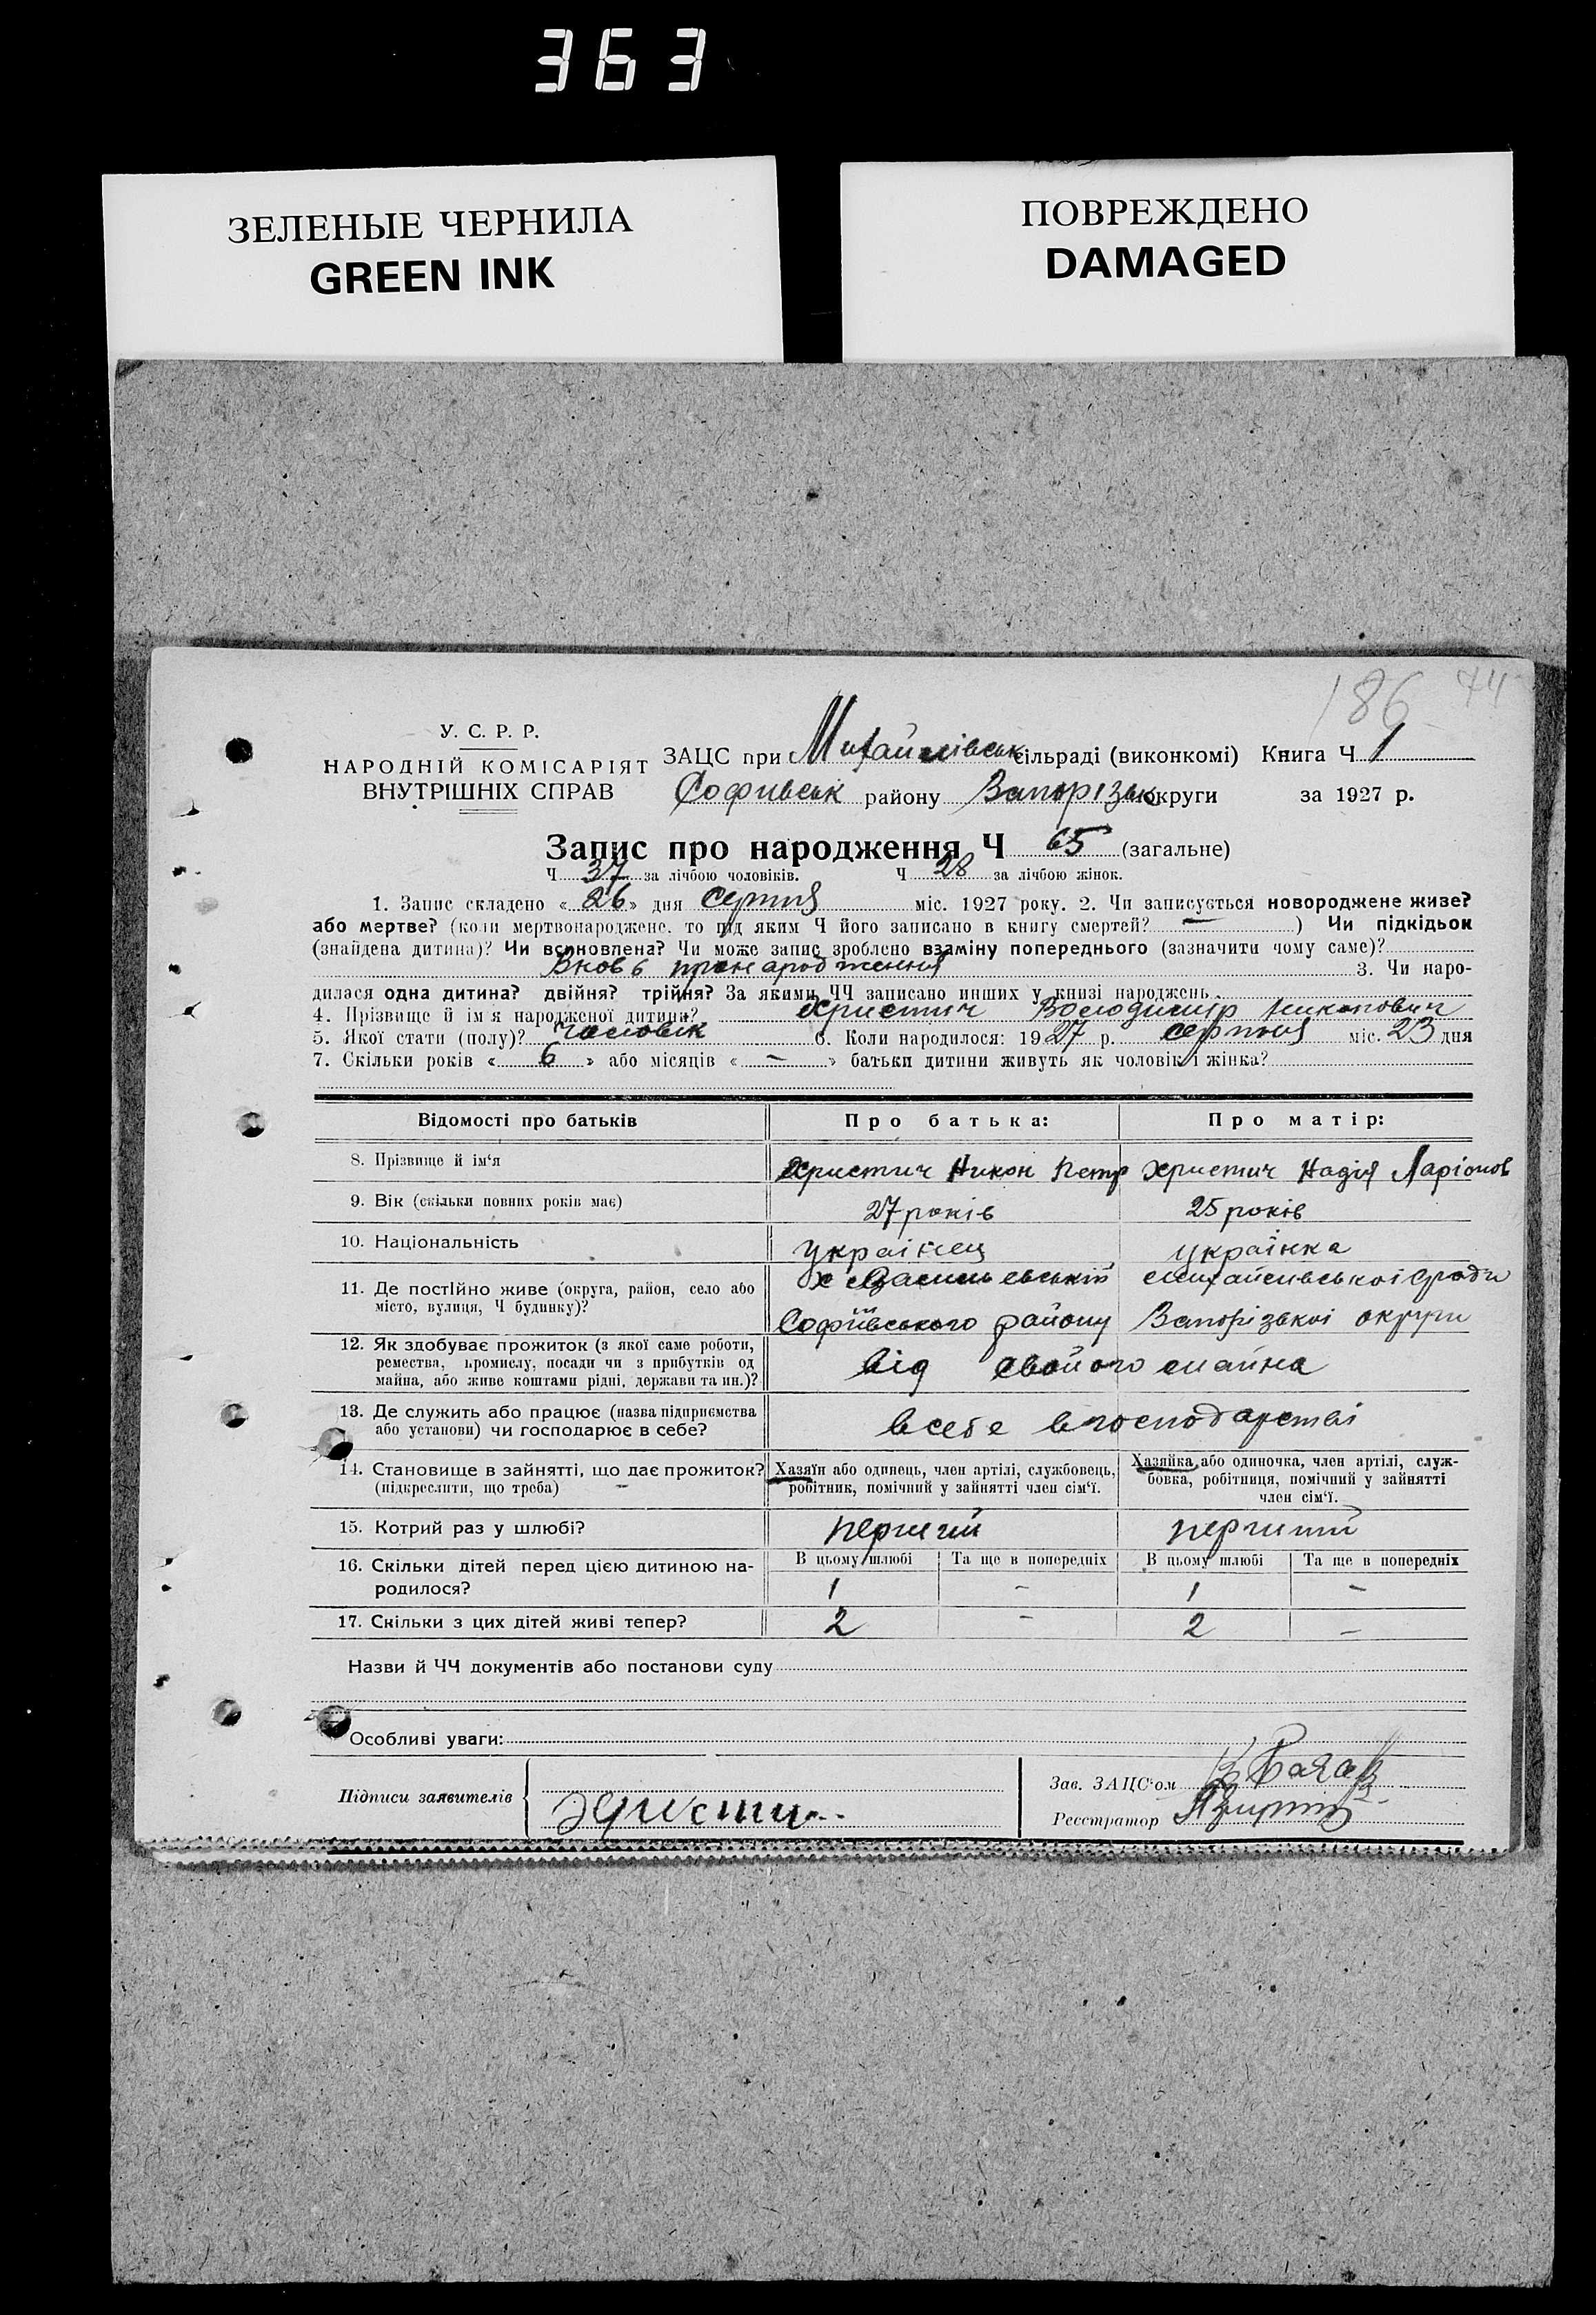 363
ЗЕЛЕНЫЕ ЧЕРНИЛА
GREEN INK
ПОВРЕЖДЕНО
DAMAGED
186 74
У. С. Р. Р.
НАРОДНІЙ КОМІСАРІЯТ
ВНУТРІШНІХ СПРАВ
ЗАЦС при Михайлівськ сільраді (виконкомі) Книга Ч 1
Софивськ району Запорізьк округи за 1927 р.
Запис про народження Ч 65 (загальне)
Ч 37 за лічбою чоловіків. Ч 28 за лічбою жінок.
1. Запис складено « 26 » дня серпня міс. 1927 року. 2. Чи записується новороджене живе?
або мертве? (коли мертвонароджене, то під яким Ч його записано в книгу смертей? — ) Чи підкідьок
(знайдена дитина)? Чи всиновлена? Чи може запис зроблено взаміну попереднього (зазначити чому саме)?
Вновь про народження 3. Чи наро-
дилася одна дитина? двійня? трійня? За якими ЧЧ записано инших у книзі народжень
4. Прізвище й ім'я народженої дитини? Христич Володимир Никонович
5. Якої стати (полу)? чоловік 6. Коли народилося: 1927 р. серпня міс. 23 дня
7. Скільки років « 6 » або місяців « — » батьки дитини живуть як чоловік і жінка?
Відомості про батьків Про батька: Про матір:
8. Прізвище й ім'я Христич Никон Петр Христич Надія Ларіонов
9. Вік (скільки повних років має) 27 років 25 років
10. Національність українец українка
11. Де постійно живе (округа, район, село або х Васильевській михайлівськоі сради
місто, вулиця, Ч будинку)? Софіївського району Запорізькоі округи
12. Як здобуває прожиток (з якої саме роботи,
ремества, промислу, посади чи з прибутків од від свойого майна
майна, або живе коштами рідні, держави та ин.)?
13. Де служить або працює (назва підприємства
або установи) чи господарює в себе? всебе вгосподарстві
14. Становище в зайнятті, що дає прожиток? Хазяїн або одинець, член артілі, службовець, Хазяйка або одиночка, член артілі, служ-
(підкреслити, що треба) робітник, помічний у зайнятті член сім'ї. бовка, робітниця, помічний у зайнятті
член сім'ї.
15. Котрий раз у шлюбі? перший перший
16. Скільки дітей перед цією дитиною на- В цьому шлюбі Та ще в попередніх В цьому шлюбі Та ще в попередніх
родилося? 1 - 1 -
17. Скільки з цих дітей живі тепер? 2 - 2 -
Назви й ЧЧ документів або постанови суду
Особливі уваги:
Підписи заявителів Христич
Зав. ЗАЦС'ом
Реєстратор